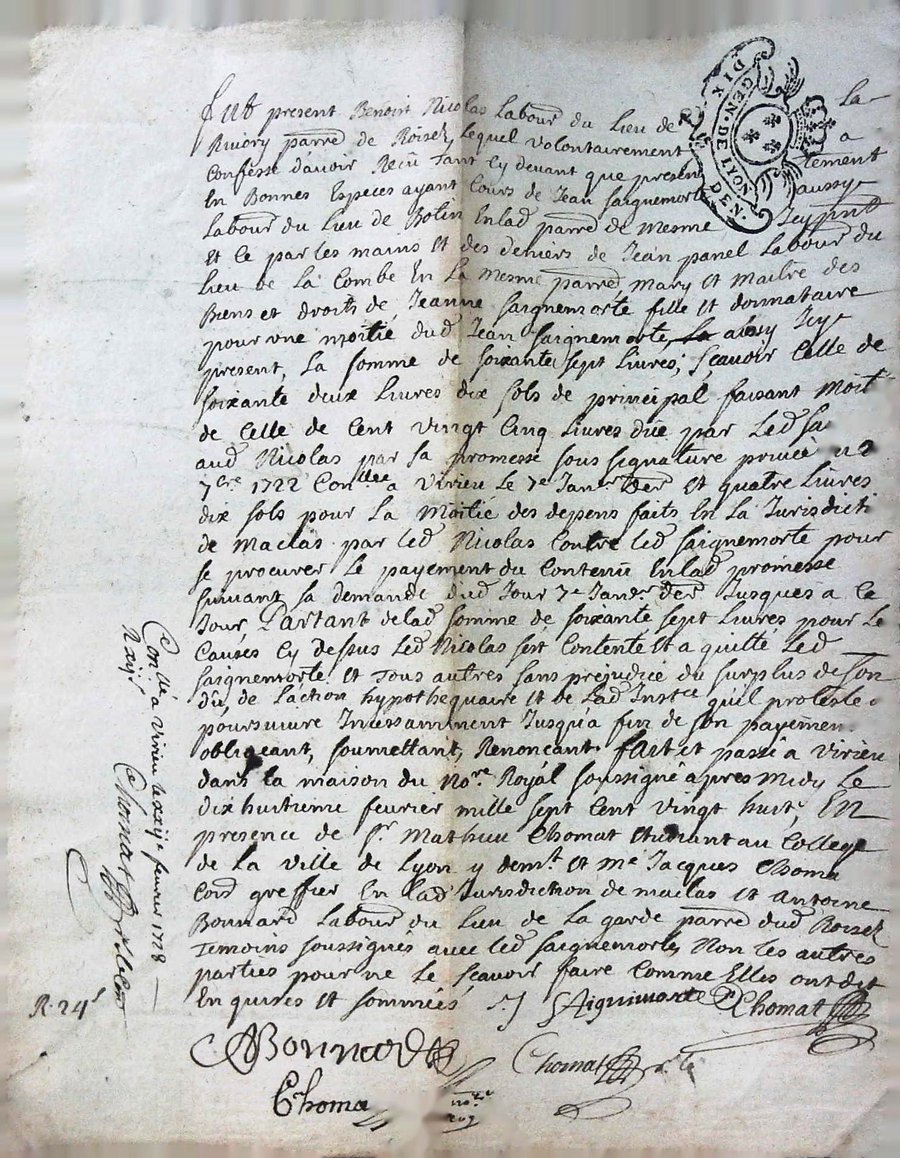 GEN. DE LYON
DIX DEN.
Fut present Benoit Nicolas Labour du Lieu de La
Rivory parre de Roisey Lequel volontairement a
Confessé d'avoir Receu Tant Cy devant que presentement
En Bonnes Especes ayant Cours de Jean Saignemorte aussy
Labour du Lieu de Botin Enlad parre de mesme Icy pnt
Et Ce par les mains Et des deniers de Jean panel Labour du
Lieu de La Combe En La mesme parre, mary et maitre des
Biens et droits de Jeanne Saignemorte fille et donnataire
pour une moitié dud Jean Saignemorte aussy Icy
present, La somme de soixante sept Livres; Scavoir Celle de
soixante deux Livres dix sols de principal faisant moit
de Celle de Cent vingt Cinq Livres düe par Led Sa
aud Nicolas par sa promesse sous signature privée du 2
7bre 1722 Conllée a Virieu Le 7e Janr der Et quatre Livres
dix sols pour La Moitié des depens faits En La Jurisdicti
de Maclas par Led Nicolas Contre Led Saignemorte pour
se procurer Le payement du Contenu Enlad promesse
suivant sa demande dud Jour 7e Janr der Jusques a Ce
Jour, Partant delad somme de soixante sept Livres pour Le
Causes Cy dessus Led Nicolas s'est Contenté Et a quitté Led
Saignemorte Et Tous autres sans prejudice du surplus de son
dû, de L'action hypothequaire Et de Lad Instce qu'il proteste
poursuivre Incessamment Jusqu'a fin de son payemen
obligeant, soumettant, Renoncant. fait et passé a Virieu
dans La maison du Nore Royal soussigné apres midy Le
dix huitieme fevrier mille sept Cent vingt huit, En
presence de Sr Mathieu Chomat Etudiant au College
de La ville de Lyon y demt Et Me Jacques Choma
Cord greffier En Lad Jurisdiction de maclas Et Antoine
Bonnard Labour du Lieu de La garde parre dud Roisey
Temoins soussignés avec Led Saignemorte, Non Les autres
parties pour ne Le Scavoir faire Comme Elles ont dit
Enquises Et sommées
SAiguimorte Chomat
Bonnard
Chomat
Choma
nore
roy
Conllé a Virieu Le xxije fevrier 1728
R xij s
Chomat
R. 24s